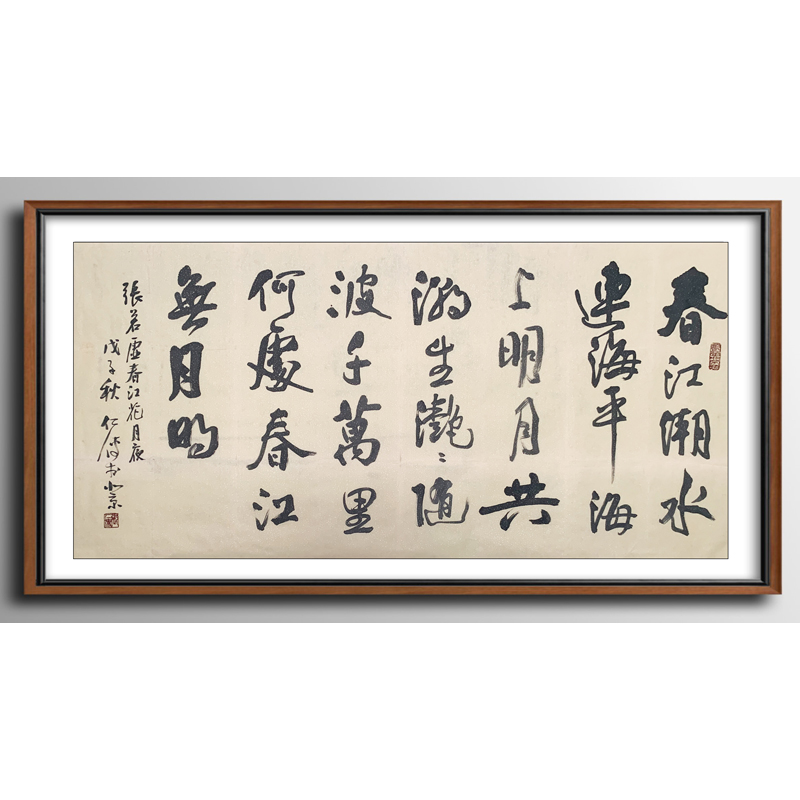 春江潮水
連海平海
上明月共
潮生灔〻隨
波千萬里
何處春江
無月明
張若虛春江花月夜
戊子秋 仁齊書於北京